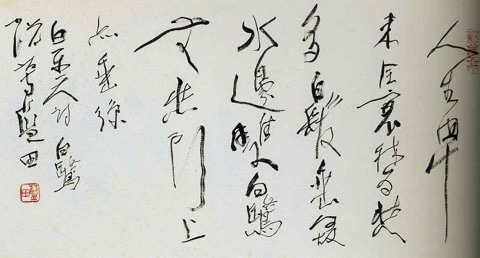 人生四十
未全衰我為愁
多白髮垂何故
水邊雙白鷺
無愁頭上
亦垂絲
白樂天詩白鷺